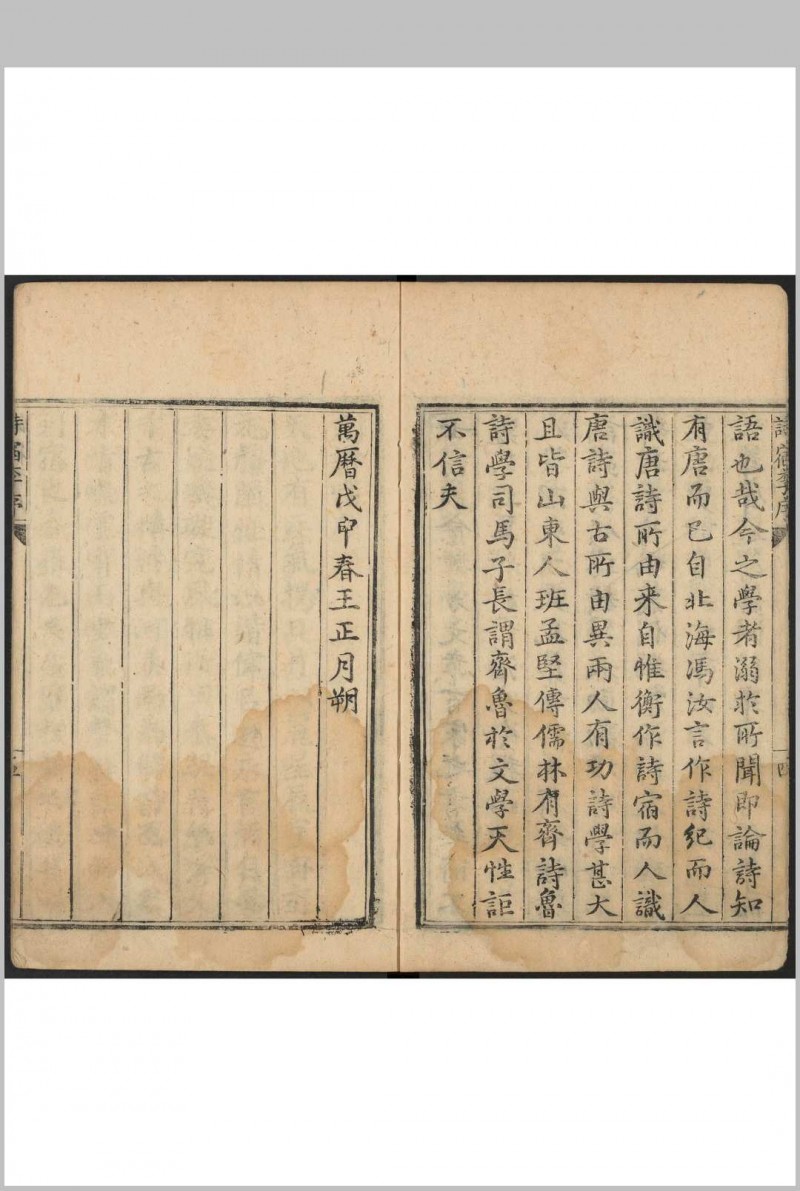 語也哉今之學者溺於所聞即論詩知
有唐而已自北海馮汝言作詩紀而人
識唐詩所由来自惟衡作詩宿而人識
唐詩與古所由異兩人有功詩學甚大
且皆山東人班孟堅傳儒林有齊詩魯
詩學司馬子長謂齊魯於文學天性詎
不信夫
萬曆戊申春王正月朔